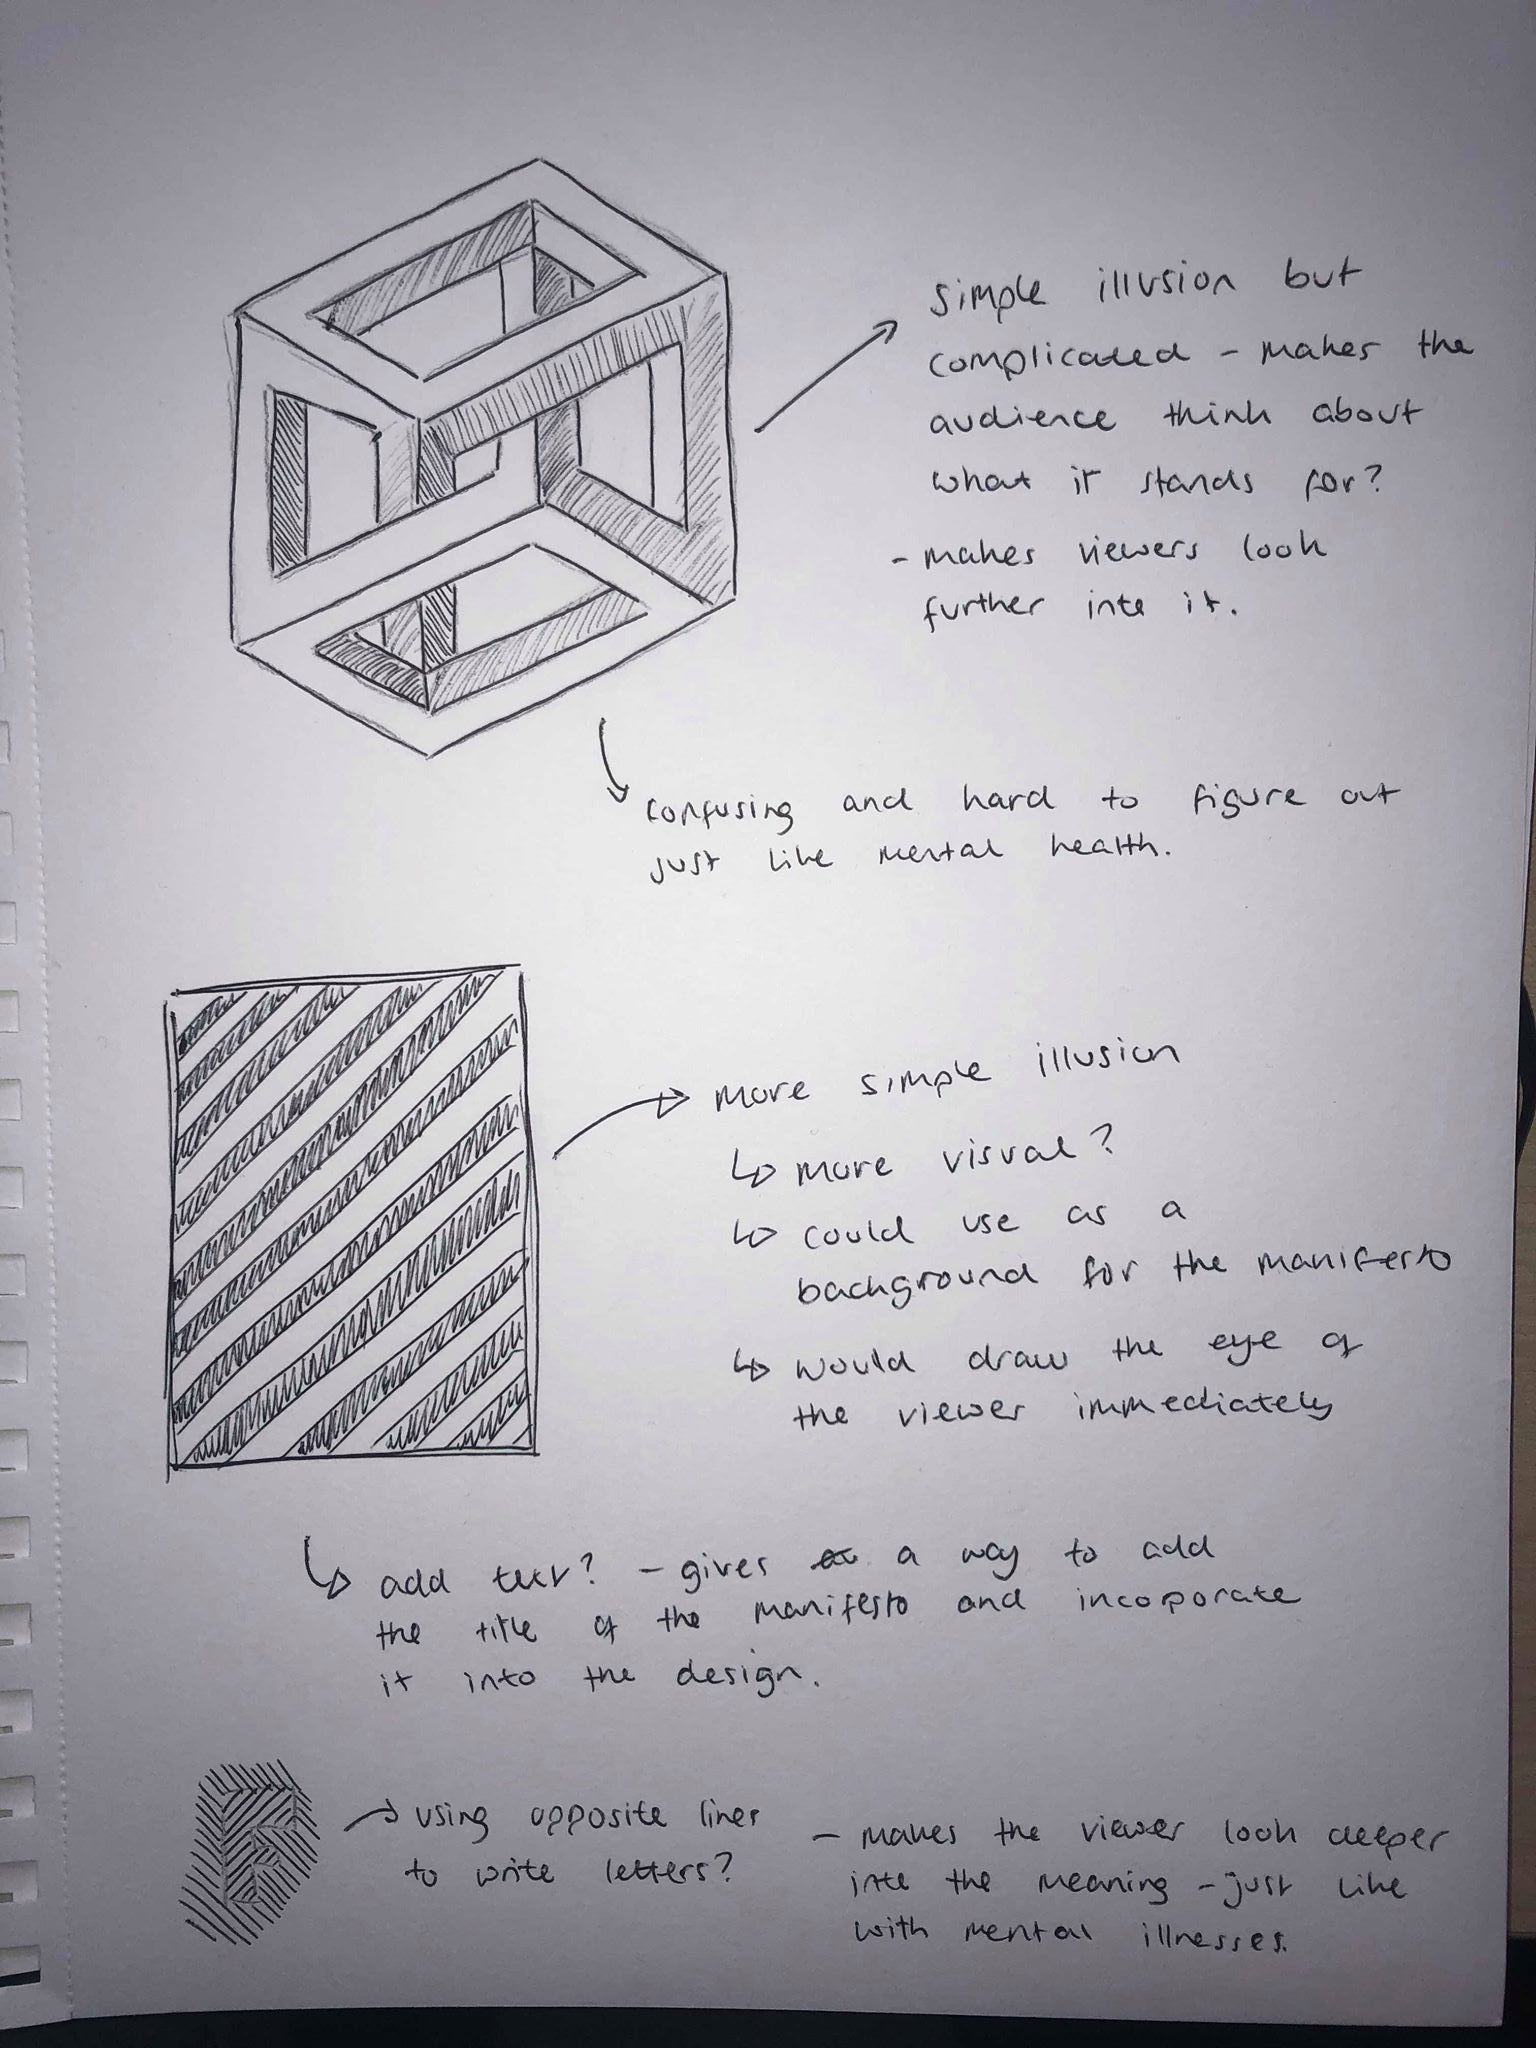 simple illusion but
complicated - makes the
audience think about
what it stands for?
- makes viewers look
further into it.
confusing and hard to figure out
just like mental health.
more simple illusion
↳ more visual?
↳ could use as a
background for the manifesto
↳ would draw the eye of
the viewer immediately
↳ add text? - gives a way to add
the title of the manifesto and incorporate
it into the design.
→ using opposite lines
to write letters?
- makes the viewer look deeper
into the meaning - just like
with mental illnesses.